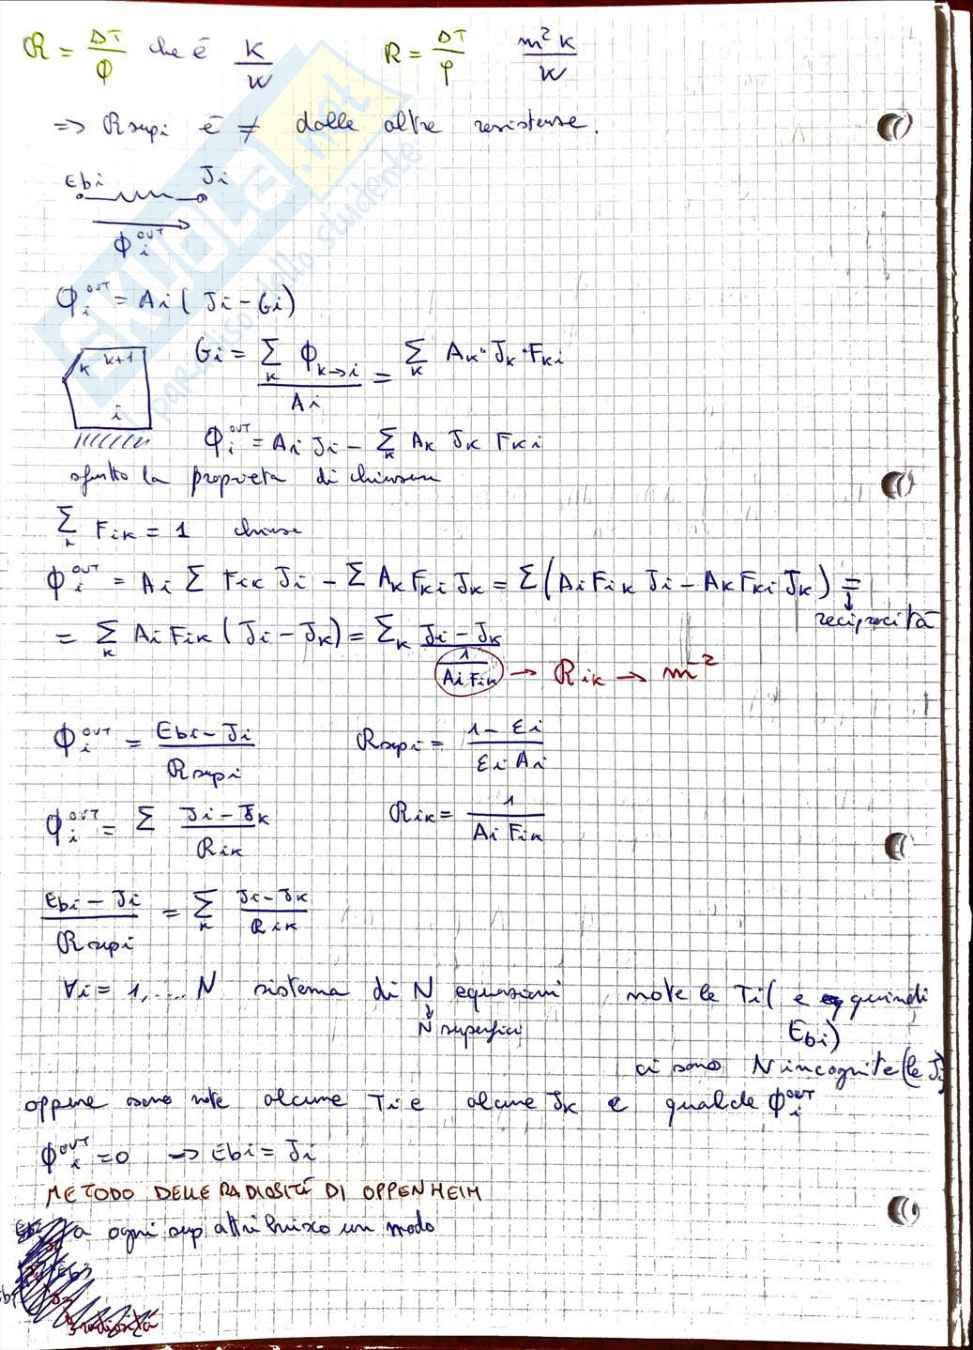 R = ΔT/Φ che è K/W    R = ΔT/φ    m²K/W
=> Rsupi è ≠ dalle altre resistenze.
Ebi    Ji
Φi^OUT
Φi^OUT = Ai (Ji - Gi)
k  k+1
i
Gi = Σk Φk→i / Ai = Σk Ak · Jk · Fki
Φi^OUT = Ai Ji - Σk Ak Jk Fki
sfrutto la proprietà di chiusura
Σk Fik = 1    chiusa
Φi^OUT = Ai Σ Fik Ji - Σ Ak Fki Jk = Σ (Ai Fik Ji - Ak Fki Jk) =
↓ reciprocità
= Σk Ai Fik (Ji - Jk) = Σk (Ji - Jk) / (1/(Ai Fik)) → Rik → m^-2
Φi^OUT = (Ebi - Ji)/Rsupi    Rsupi = (1 - εi)/(εi Ai)
Φi^OUT = Σ (Ji - Jk)/Rik    Rik = 1/(Ai Fik)
(Ebi - Ji)/Rsupi = Σk (Ji - Jk)/Rik
∀i = 1, .... N    sistema di N equazioni    note le Ti (e quindi
↓ N superfici    Ebi)
ci sono N incognite (le Ji)
oppure sono note alcune Ti e alcune Jk e qualche Φi^OUT
Φi^OUT = 0 → Ebi = Ji
METODO DELLE RADIOSITÀ DI OPPENHEIM
a ogni sup attribuisco un nodo
SKUOLA.net
paradiso dello studente